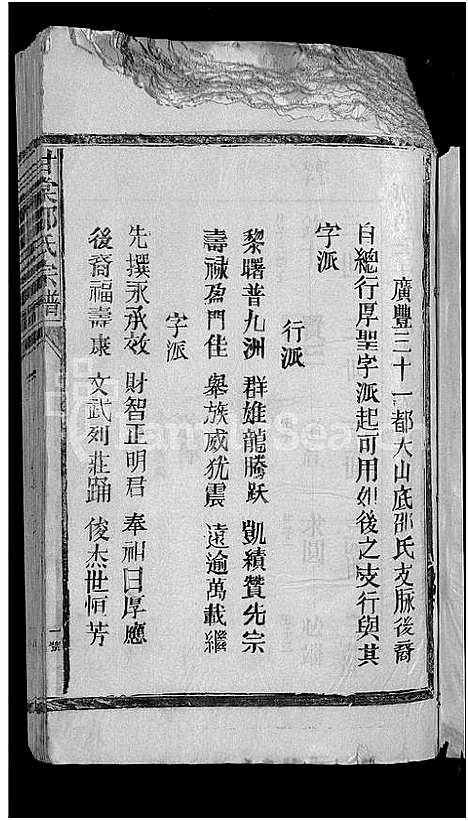 廣豐三十一都大山底邵氏支脉後裔
自總行厚聖字派起可用如後之支行與其
字派
行派
黎曙普九洲 群雄龍騰跃 凱績贊先宗
壽祿盈門佳 舉族威犹震 遠逾萬載繼
字派
先撰永承效 財智正明君 奉祖日厚應
後裔福壽康 文武列莊踊 俊杰世恒芳
邵氏宗譜
一號